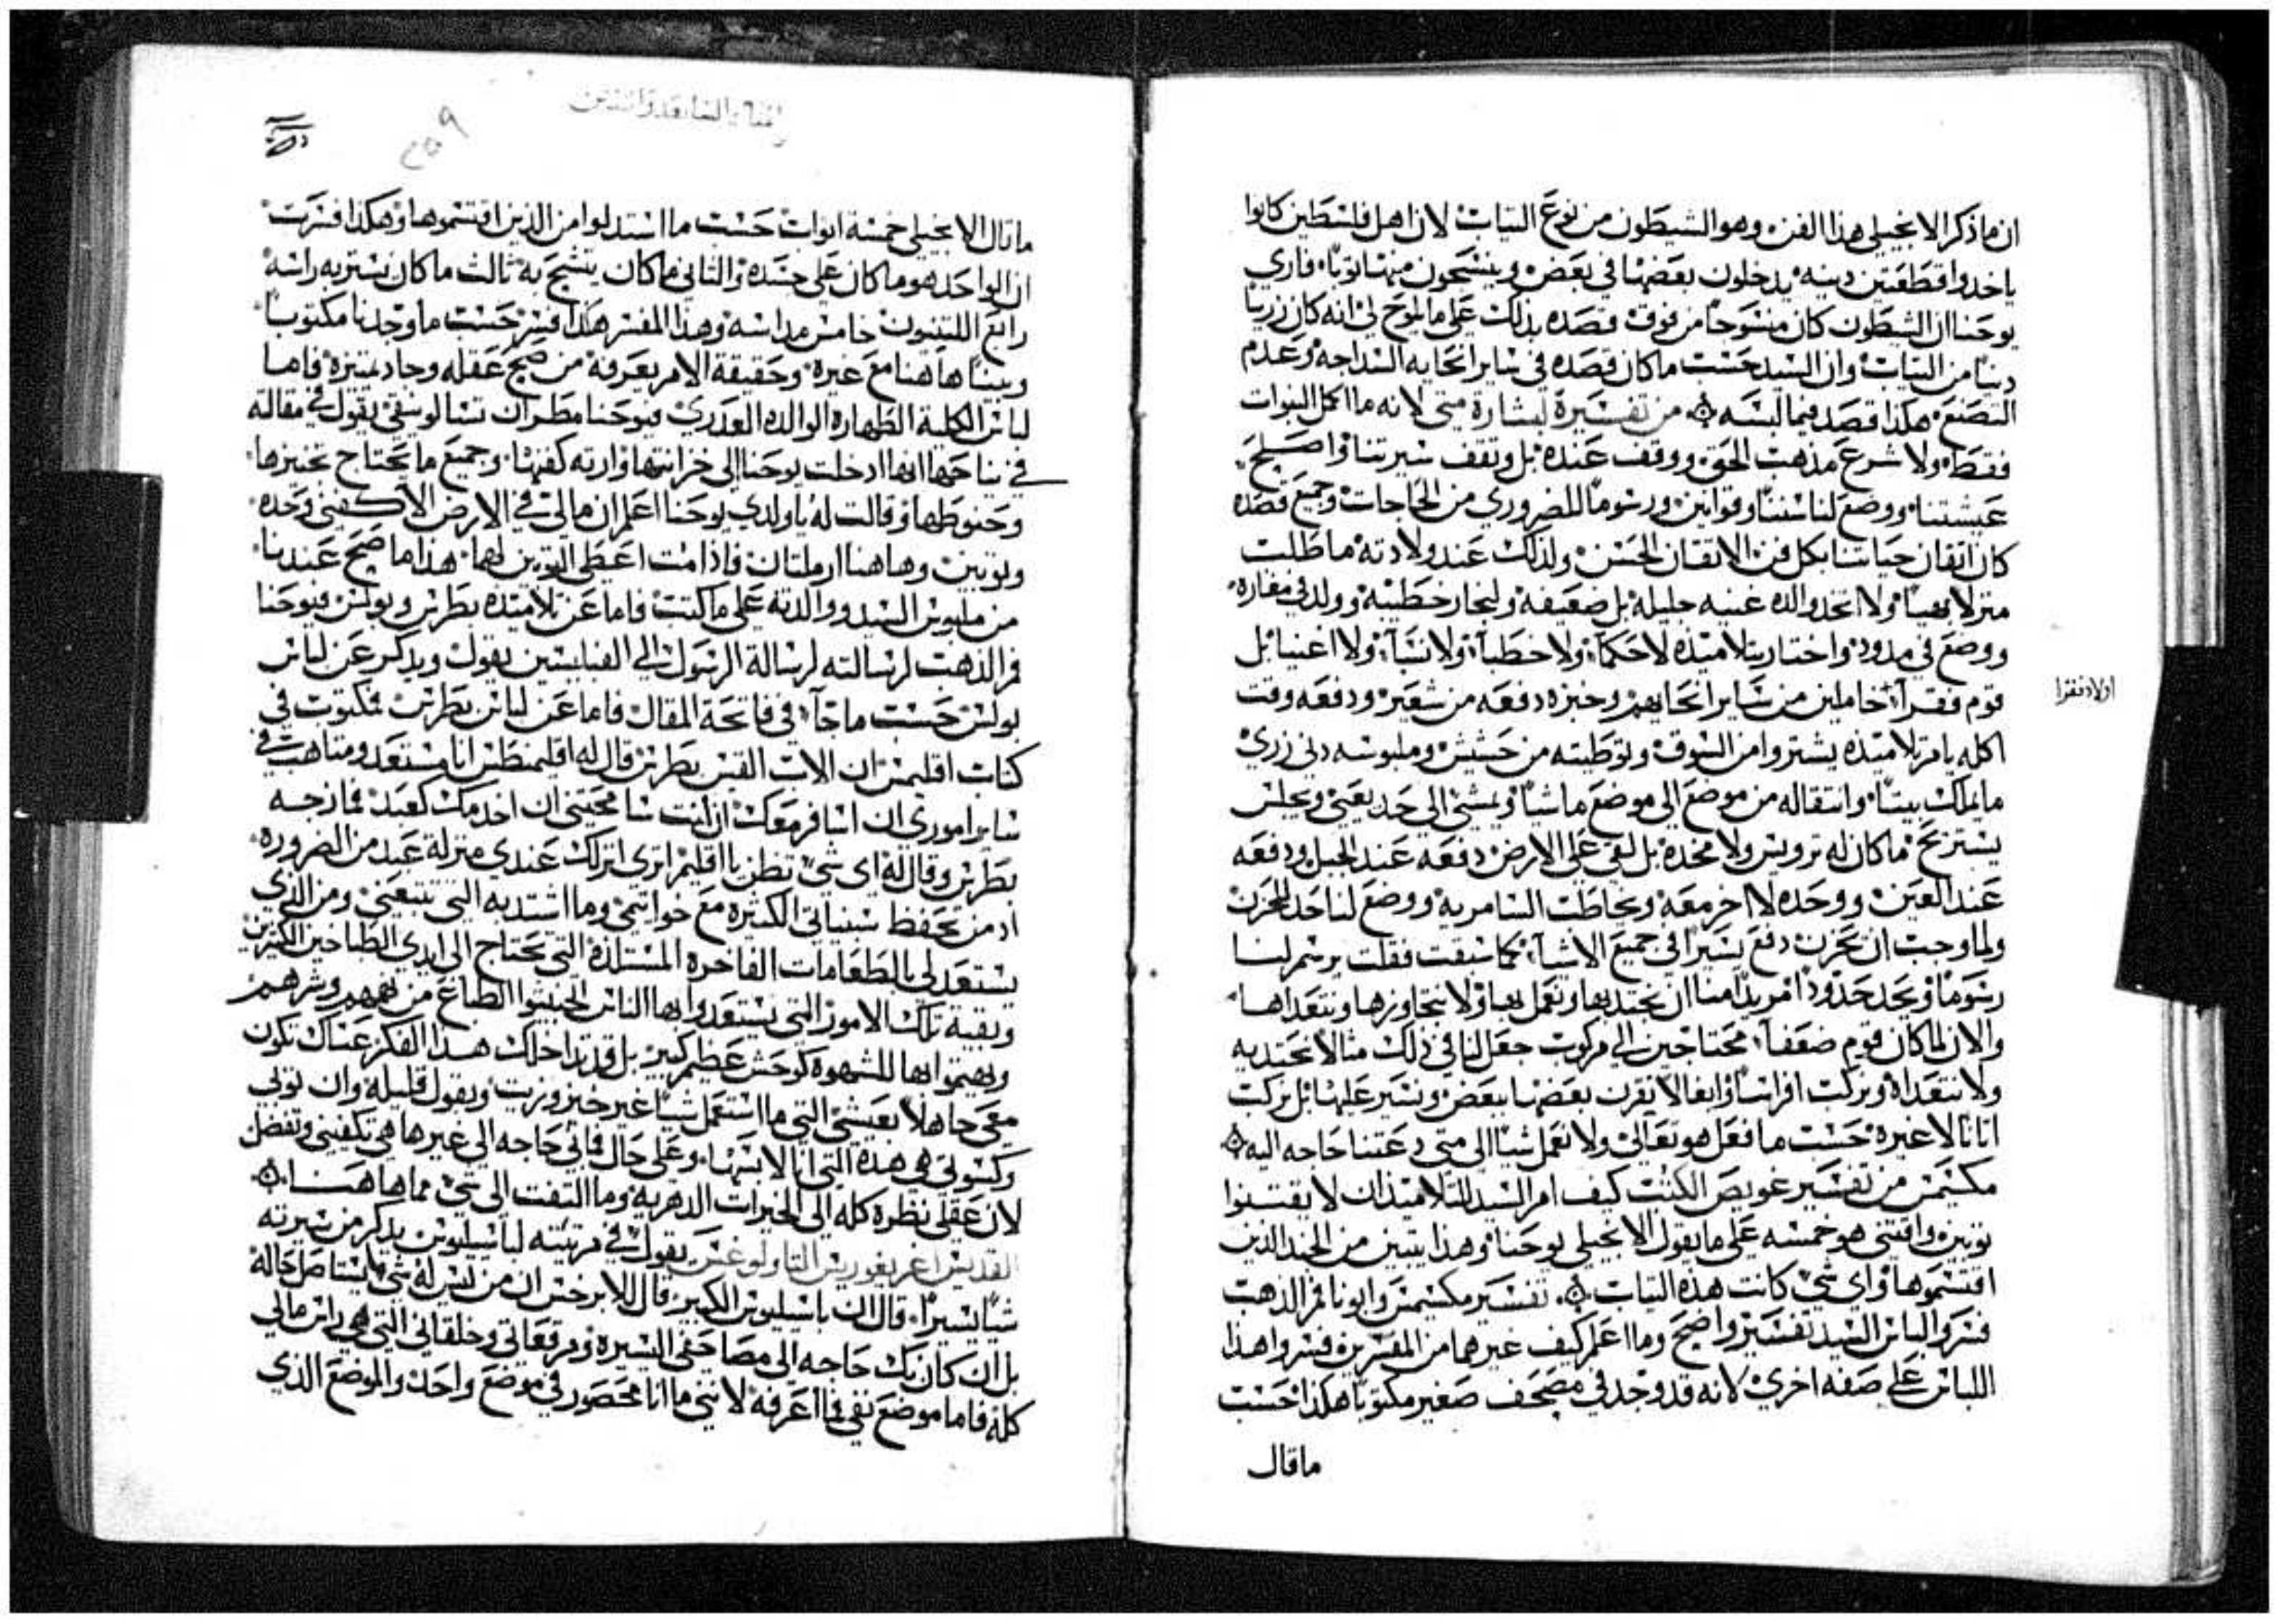 ان ما ذكر الانجيلي هذا الفن وهو الشيطون من نوع التياب لان اهل فلسطين كانوا
ياخدوا قطعتين دينه يدخلون بعضها في بعض وينسجون منها توبا فاري
يوحنا ان الشيطون كان منسوجا من فوق قصده بذلك على ما يلوح لي انه كان زريا
دينا من التياب وان السيد حسب ما كان قصده في ساير انحايه السداجه وعدم
التصنع هكذا قصد فيما لبسه من تفسيره لبشارة متى لانه ما اكمل النبوات
فقط ولا شرع مذهب الحق ووقف عنده بل وتقف سيرتنا واصلح
عيشتنا ووضع لنا سننا وقوانين ورسوما للضروري من الحاجات وجميع قصده
كان اتقان حياتنا بكل فن الاتقان الحسن ولذلك عند ولادته ما طلب
منزلا بهيا ولا اتخد والده غنيه جليله بل ضعيفه ولنجار خطيبه وولد في مغاره
ووضع في مدود واختار بتلاميذه لا حكما ولا خطبا ولا نسبا ولا اغنيا بل
قوم فقرآ خاملين من ساير انحايهم وخبزه دفعه من شعير ودفعه وقت
اولاد فقرا
اكله يامر تلاميذه يشتروا من السوق وتوطيته من حشيش وملبوسه دني زري
ما يملك بيتا وانتقاله من موضع الى موضع ماشيا ويمشي الى حد يعيي ويجلس
يستريح ما كان له ترويس ولا مخده بل لقي على الارض دفعه عند الجبل ودفعه
عند العين ووحده لا اخر معه ويخاطب السامريه ووضع لنا حد للحزن
ولما وجب ان يحزن دفع يسيرا في جميع الاشيآ كما سبقت فقلت يرسم لنا
رسوما ويحد حدودا مريدا منا ان نحتد بها ونعمل بها ولا نتجاوزها ونتعداها
والان لما كان قوم ضعفآ محتاجين الى مركوب جعل لنا في ذلك مثالا نحتديه
ولا نتعداه ونركب افراسا وابغالا نقرن بعضها ببعض ونسير عليها بل نركب
اتانا لا غيره حسب ما فعل هو تعالى ولا نعمل شيا الى متى دعتنا حاجه اليه
مكسيمس من تفسير عويص الكتب كيف امر السيد للتلاميذ ان لا يقتنوا
توبين واقتنى هو خمسه على ما يقول الانجيلي يوحنا وهذا يتبين من الجند الذين
اقتسموها واي شي كانت هذه التياب تفسير مكسيمس وابونا فم الذهب
فسروا لباس السيد تفسير واضح وما اعلم كيف غيرهما من المفسرين فسروا هذا
اللباس على صفه اخري لانه قد وجد في مصحف صغير مكتوبا هكذا حسب
ما قال
ما قال الانجيلي خمسة اتواب حسب ما استدلوا من الذين اقتسموها وهكذا فسرت
ان الواحد هو ما كان على جسده والتاني ما كان يتشح به ثالث ما كان يستر به راسه
رابع اللنتيون خامس مداسه وهذا المفسر هكذا فسر حسب ما وجدنا مكتوبا
وبينا هاهنا مع غيره وحقيقة الامر يعرفه من صح عقله وحاد تميزه فاما
لباس الكلية الطهاره الوالده العدري فيوحنا مطران تسالونيقي يقول في مقالة
في نياحها انها ادخلت يوحنا الى خزانتها وارته كفنها وجميع ما يحتاج تجنيزها
وحنوطها وقالت له ياولدي يوحنا اعلم ان مالي في الارض الا كفني وحده
وتوبين وهاهنا ارملتان فاذا مت اعطي التوبين لهما هذا ما صح عندنا
من ملبوس السيد ووالدته على ما كتبت فاما عن تلاميذه بطرس وبولس فيوحنا
فم الذهب لرسالته لرسالة الرسول الى الفيليبسين يقول ويدكر عن لباس
بولس حسب ما جآ في فاتحة المقال فاما عن لباس بطرس فمكتوب في
كتاب اقليمس ان الاب القس بطرس قال له اقليمنطس انا مستعد ومتاهب في
ساير اموري ان اسافر معك ان انت شا محبتي ان اخدمك كعبد فمازحه
بطرس وقال له اي شي تظن يا اقليم اترى انزلك عندي منزلة عبد من الضروره
اد من يحفظ سبنياتي الكثيره مع خواتيمي وما اشتد به التي تتبعني ومن الذي
يستعد لي بالطعامات الفاخره المستلذة التي تحتاج الى ايدي الطباخين الكثيرين
وبقية تلك الامور التي يستعدوا بها الناس الخبيثوا الطباع من نهمهم وشرههم
ويهتموا بها للشهوة كوحش عظيم كبير بل قد تداخلك هذا الفكر عساك تكون
معي جاهلا بعيشتي التي ما استعمل شيا غير خبز وزيت وبقول قليله وان توبي
وكسوتي هي هذه التي انا لابسها وعلى حال فماني حاجه الى غيرها هي تكفيني وتفضل
لان عقلي نظره كله الى الخيرات الدهريه وما التفت الى شي مما هاهنا
القديس اغريغوريس التاولوغس يقول في مرتيته لباسيليوس يدكر من سيرته
شيا يسيرا قال ان باسيليوس الكبير قال للابرخس ان من ليس له شي ما يستاصل حاله
بل ان كان بك حاجه الى مصاحفي اليسيره ومرقعاتي وخلقاني التي هي راس مالي
كله فاما موضع نفي فما اعرفه لانني ما انا محصور في موضع واحد والموضع الذي